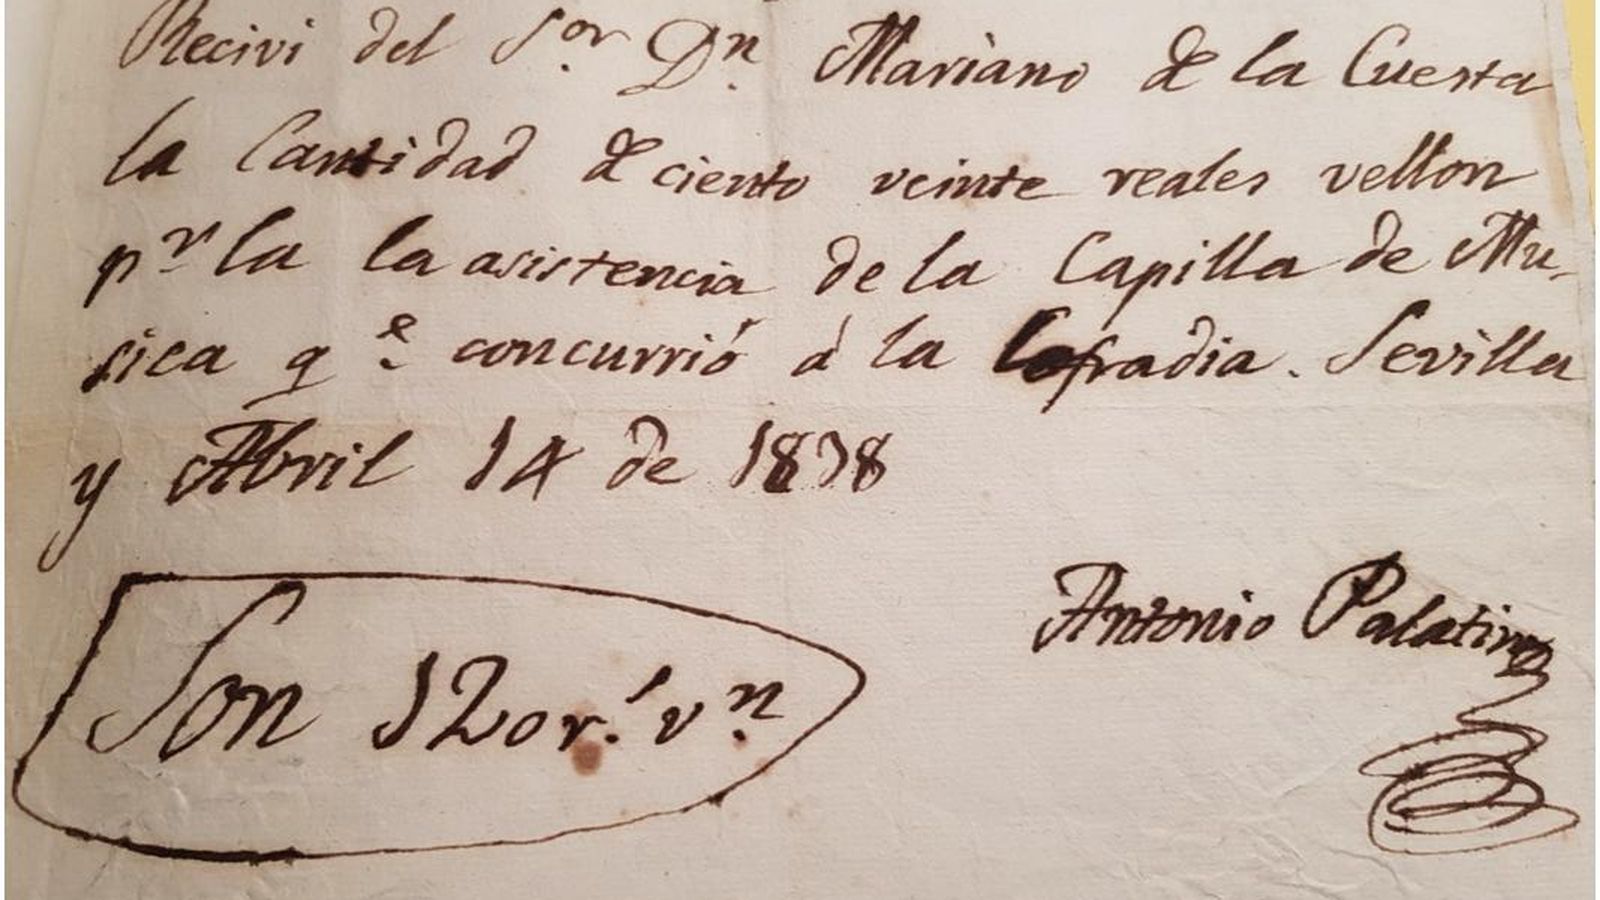 Recivi del S.or D.n Mariano de la Cuesta
la Cantidad de ciento veinte reales vellon
p.r la la asistencia de la Capilla de Mu-
sica q.e concurrió á la Cofradia. Sevilla
y Abril 14 de 1838
Son 120 r.s v.n
Antonio Palatino